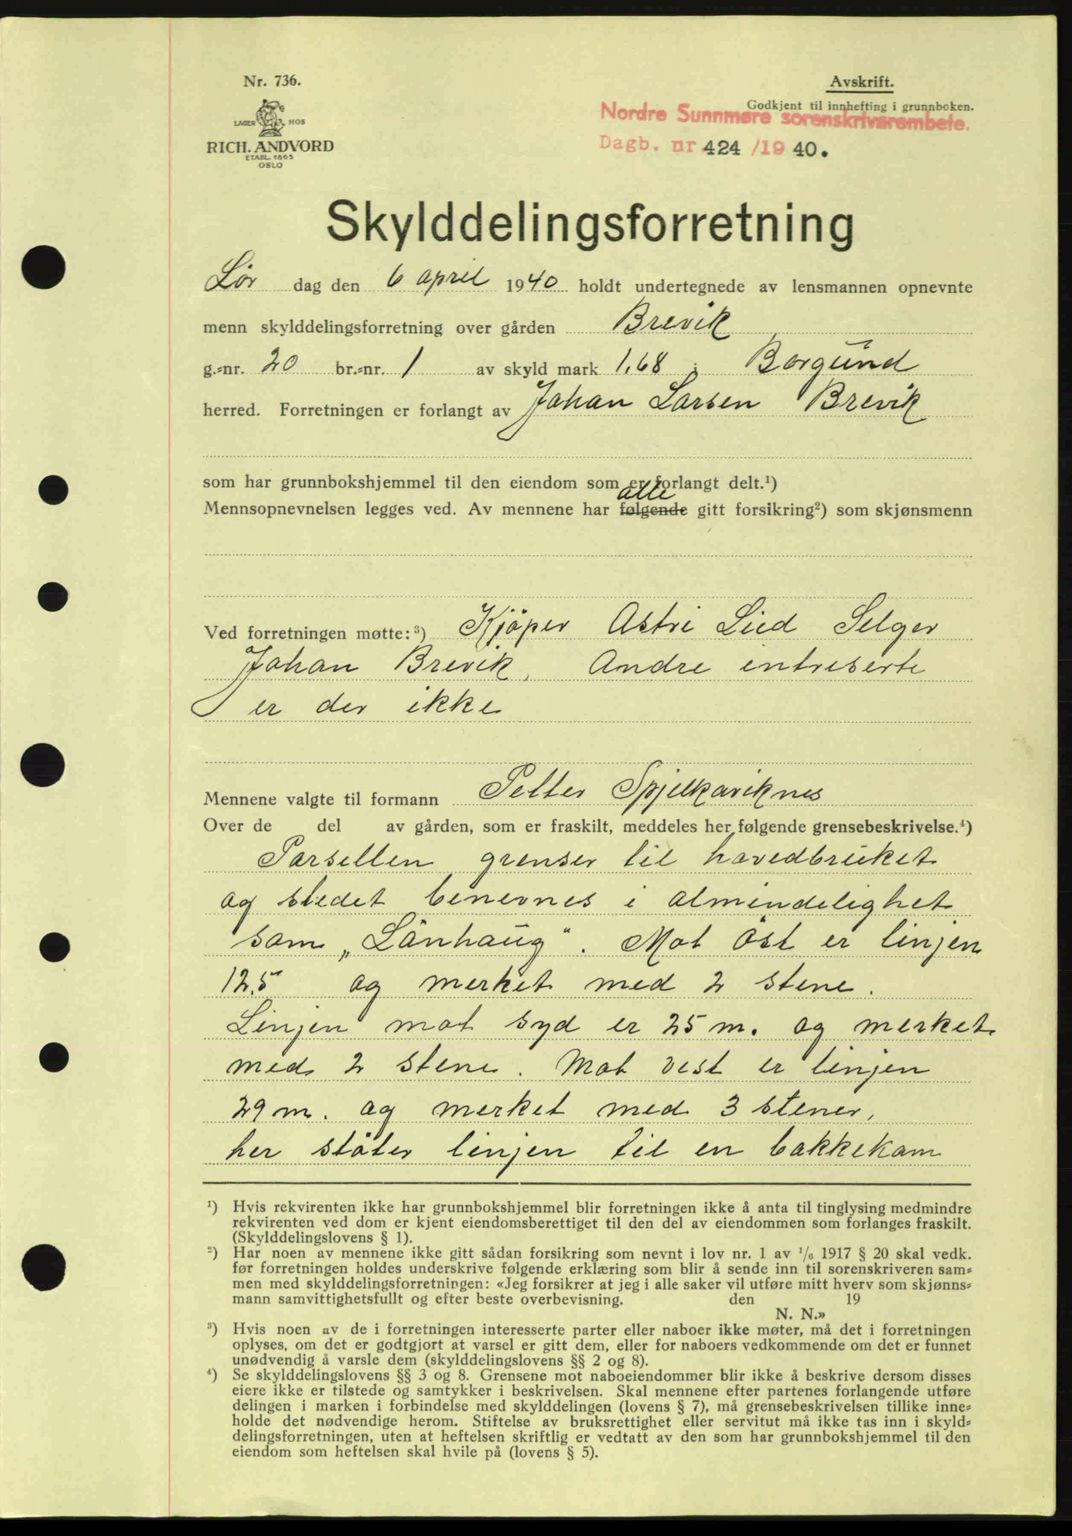 Nr. 736.
LAGER HOS
RICH. ANDVORD
ETABL. 1865
OSLO
Avskrift.
Godkjent til innhefting i grunnboken.
Nordre Sunnmøre sorenskriverembete.
Dagb. nr 424 /1940.
Skylddelingsforretning
Lør dag den 6 april 1940 holdt undertegnede av lensmannen opnevnte
menn skylddelingsforretning over gården Brevik
g.-nr. 20 br.-nr. 1 av skyld mark 1,68 i Borgund
herred. Forretningen er forlangt av Johan Larsen Brevik
som har grunnbokshjemmel til den eiendom som er forlangt delt.¹)
alle
Mennsopnevnelsen legges ved. Av mennene har følgende gitt forsikring²) som skjønsmenn
Ved forretningen møtte:³) Kjöper Astri Lied Selger
Johan Brevik. Andre intreserte
er der ikke
Mennene valgte til formann Petter Spjelkaviknes
Over de del av gården, som er fraskilt, meddeles her følgende grensebeskrivelse.⁴)
Parsellen grenser til hovedbruket
og stedet benevnes i almindelighet
som „Lånhaug“. Mot öst er linjen
12,5 og merket med 2 stene.
Linjen mot syd er 25 m. og merket
med 2 stene. Mot vest er linjen
29 m. og merket med 3 stener,
her stöter linjen til en bakkekam
¹) Hvis rekvirenten ikke har grunnbokshjemmel blir forretningen ikke å anta til tinglysing medmindre
rekvirenten ved dom er kjent eiendomsberettiget til den del av eiendommen som forlanges fraskilt.
(Skylddelingslovens § 1).
²) Har noen av mennene ikke gitt sådan forsikring som nevnt i lov nr. 1 av ¹/₆ 1917 § 20 skal vedk.
før forretningen holdes underskrive følgende erklæring som blir å sende inn til sorenskriveren sam-
men med skylddelingsforretningen: «Jeg forsikrer at jeg i alle saker vil utføre mitt hverv som skjønns-
mann samvittighetsfullt og efter beste overbevisning. den 19
N. N.»
³) Hvis noen av de i forretningen interesserte parter eller naboer ikke møter, må det i forretningen
oplyses, om det er godtgjort at varsel er gitt dem, eller for naboers vedkommende om det er funnet
unødvendig å varsle dem (skylddelingslovens §§ 2 og 8).
⁴) Se skylddelingslovens §§ 3 og 8. Grensene mot naboeiendommer blir ikke å beskrive dersom disses
eiere ikke er tilstede og samtykker i beskrivelsen. Skal mennene efter partenes forlangende utføre
delingen i marken i forbindelse med skylddelingen (lovens § 7), må grensebeskrivelsen tillike inne-
holde det nødvendige herom. Stiftelse av bruksrettighet eller servitut må ikke tas inn i skyld-
delingsforretningen, uten at heftelsen skriftlig er vedtatt av den som har grunnbokshjemmel til den
eiendom som heftelsen skal hvile på (lovens § 5).